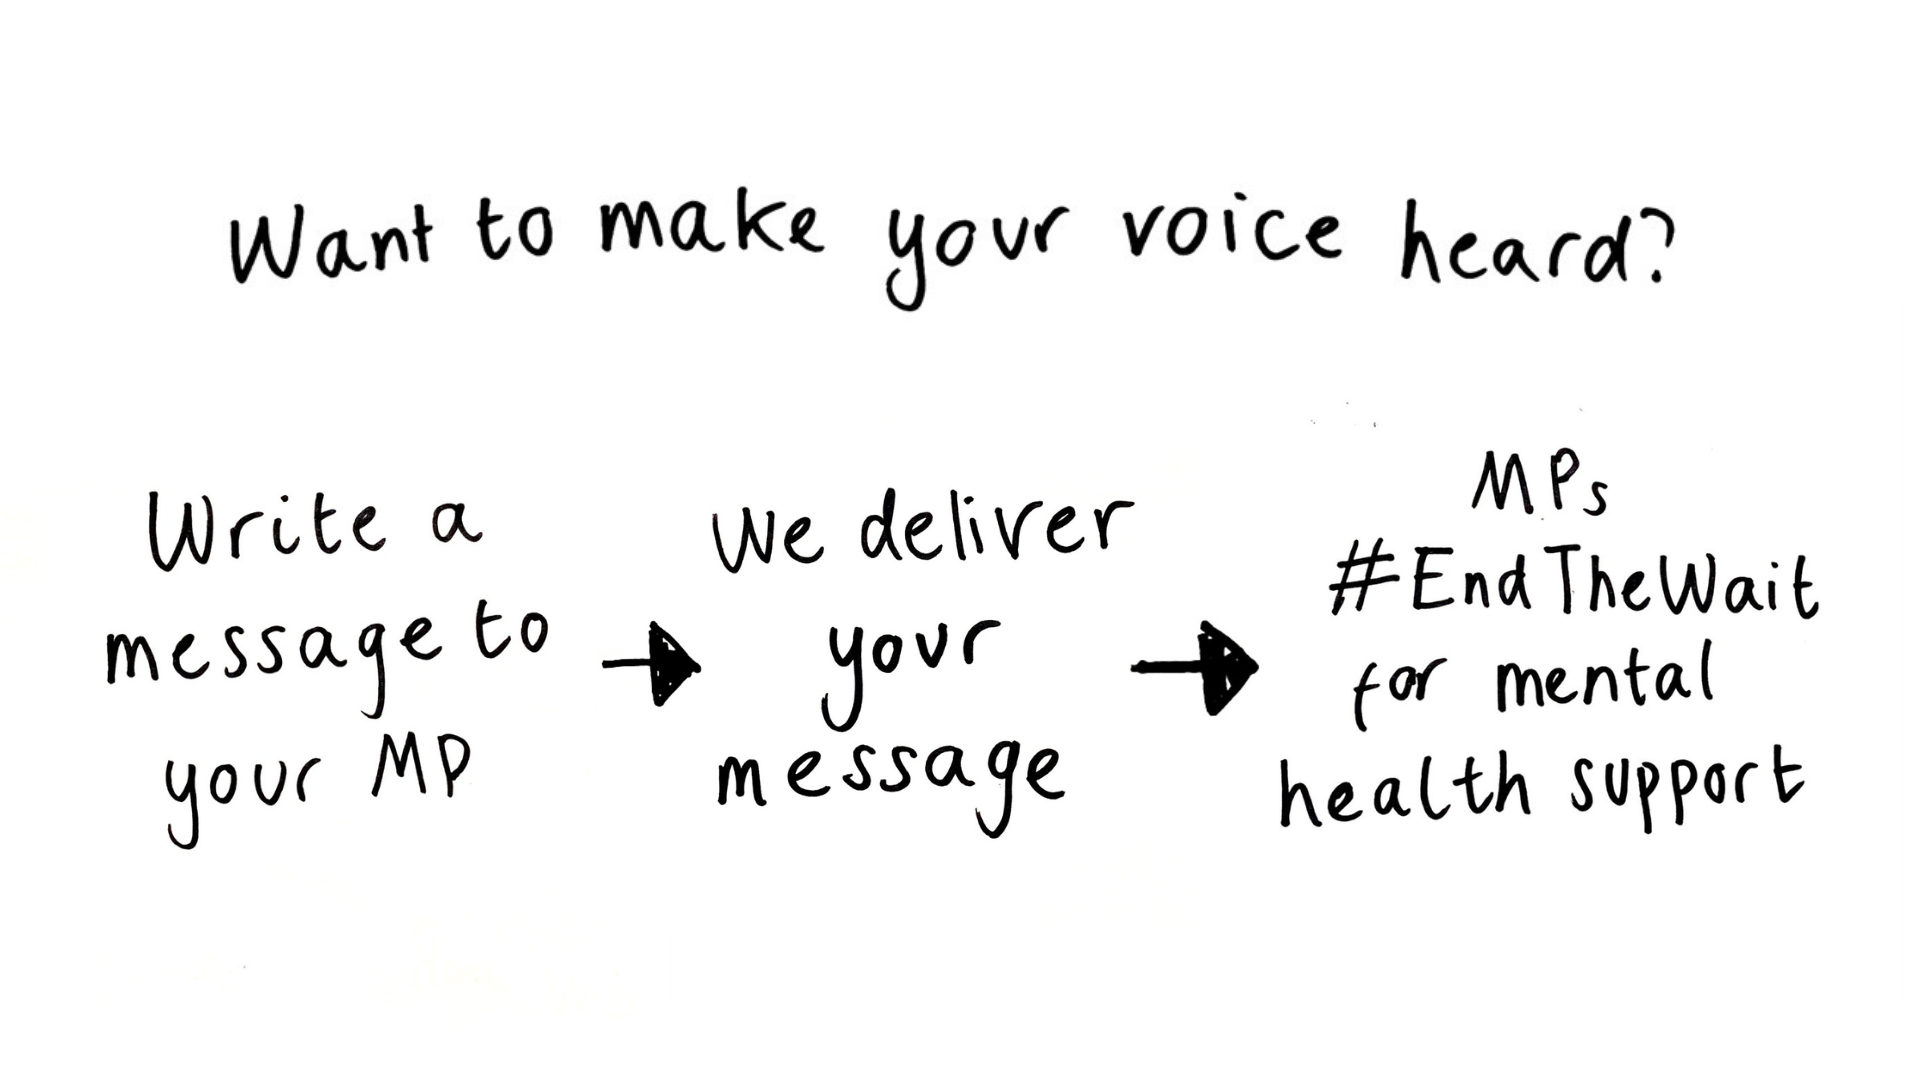 Want to make your voice heard?
Write a
message to
your MP
We deliver
your
message
MPs
#EndTheWait
for mental
health support